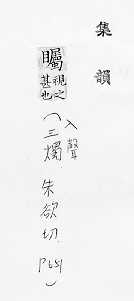 集韻
矚 視之甚也 (入聲 三燭 朱欲切 P651)